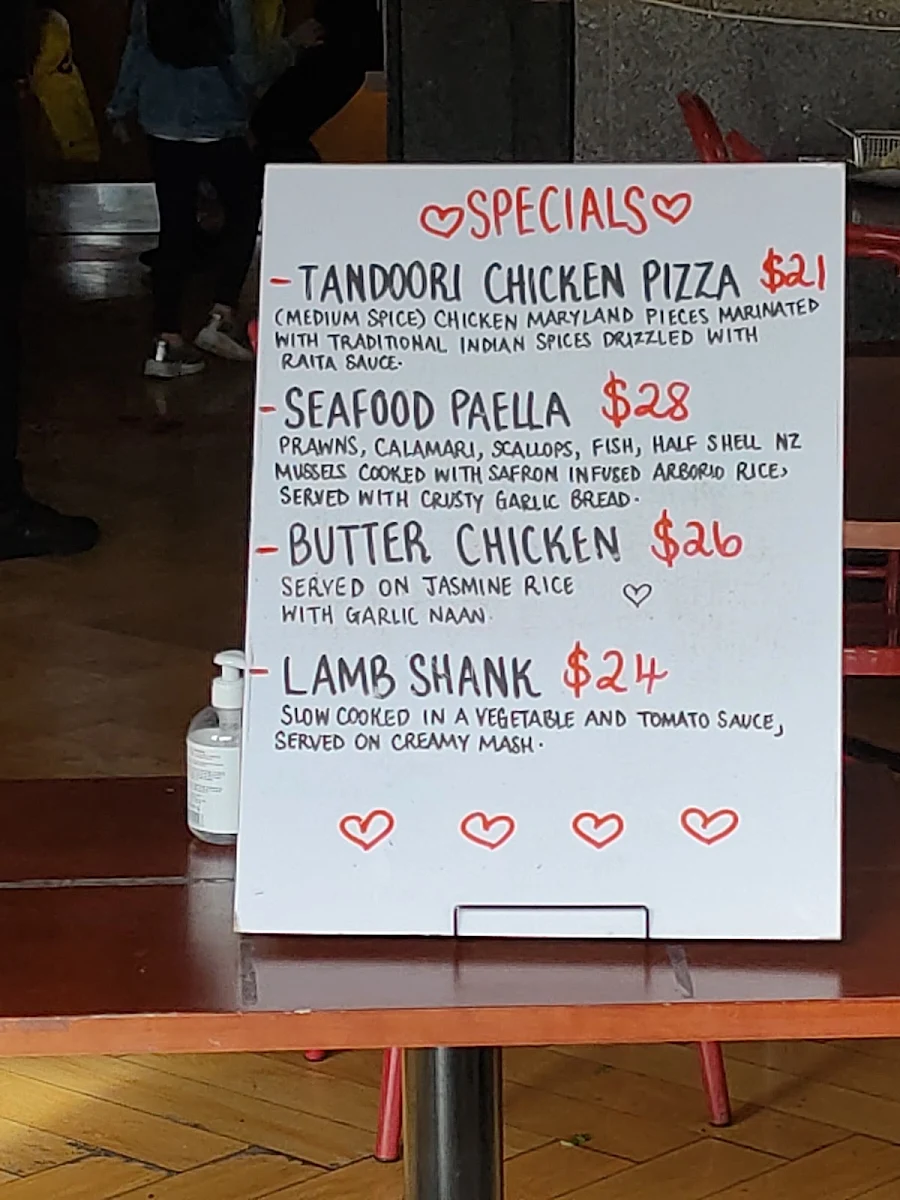 SPECIALS
- TANDOORI CHICKEN PIZZA $21
(MEDIUM SPICE) CHICKEN MARYLAND PIECES MARINATED
WITH TRADITIONAL INDIAN SPICES DRIZZLED WITH
RAITA SAUCE.
- SEAFOOD PAELLA $28
PRAWNS, CALAMARI, SCALLOPS, FISH, HALF SHELL NZ
MUSSELS COOKED WITH SAFRON INFUSED ARBORIO RICE,
SERVED WITH CRUSTY GARLIC BREAD.
- BUTTER CHICKEN $26
SERVED ON JASMINE RICE
WITH GARLIC NAAN.
- LAMB SHANK $24
SLOW COOKED IN A VEGETABLE AND TOMATO SAUCE,
SERVED ON CREAMY MASH.